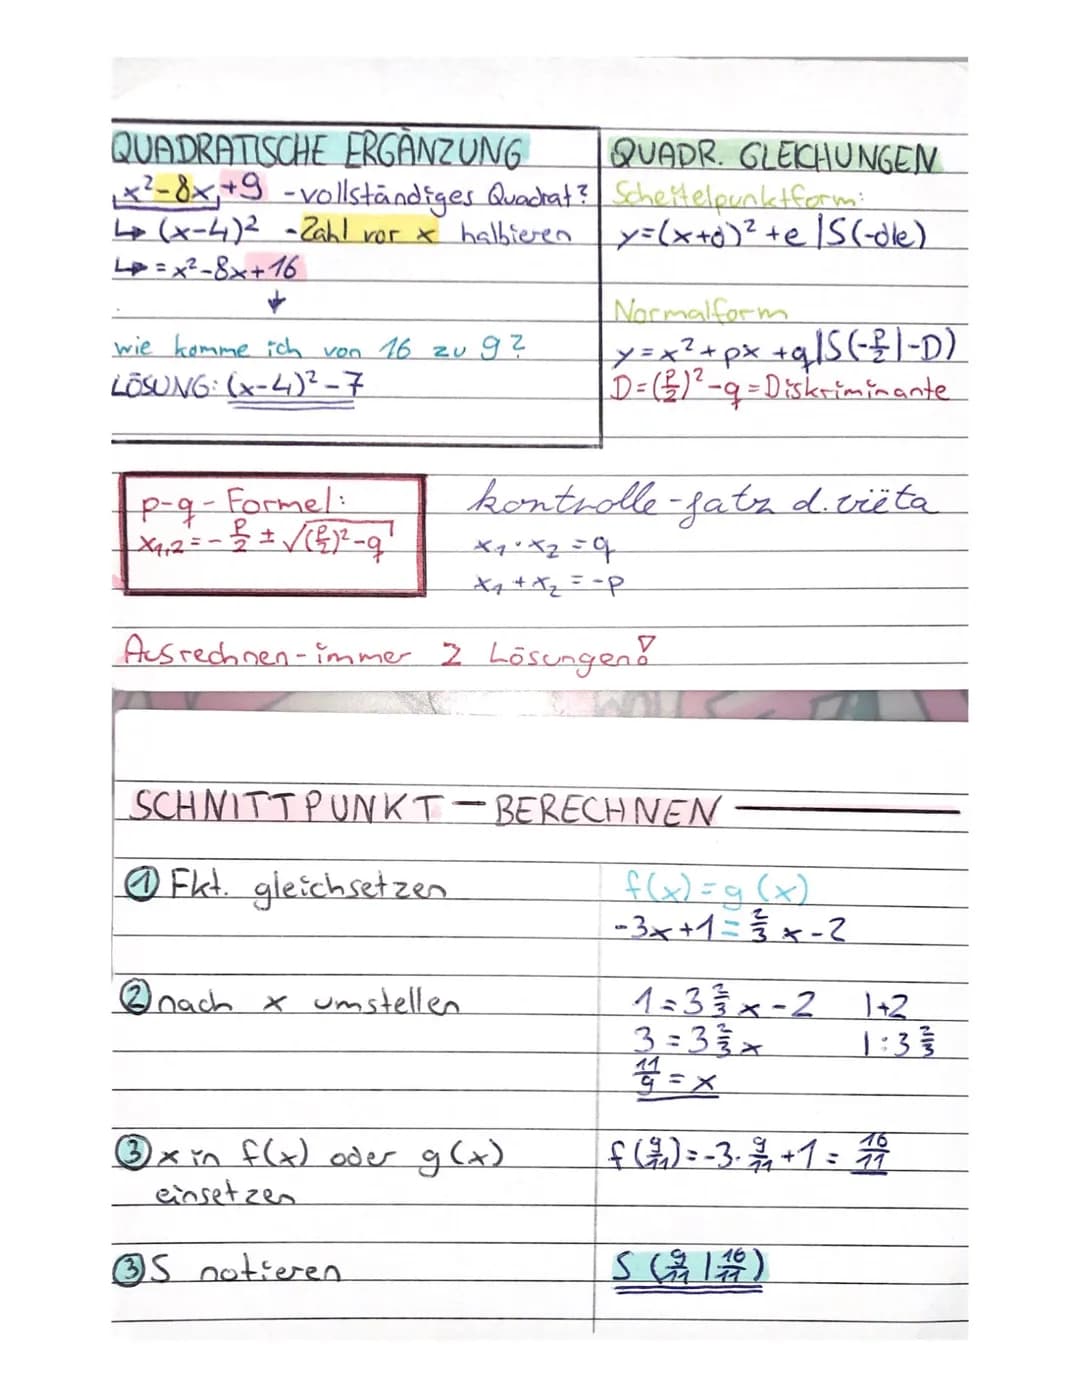 QUADRATISCHE ERGÄNZUNG
x²-8x+9 -vollständiges Quadrat?
↳ (x-4)² -Zahl vor x halbieren
↳ = x²-8x+16
↓
wie komme ich von 16 zu 9?
LÖSUNG: (x-4)²-7
QUADR. GLEICHUNGEN
Scheitelpunktform:
y=(x+d)²+e |S(-d|e)
Normalform
y=x²+px+q|S(-p/2|-D)
D=(p/2)²-q=Diskriminante
p-q-Formel:
x₁,₂=-p/2±√((p/2)²-q)
kontrolle-satz d.viëta
x₁·x₂=q
x₁+x₂=-p
Ausrechnen-immer 2 Lösungen!
SCHNITTPUNKT-BERECHNEN
① Fkt. gleichsetzen
f(x)=g(x)
-3x+1=2/3x-2
② nach x umstellen
1=3 2/3x-2 |+2
3=3 2/3x |:3 2/3
11/9=x
③ x in f(x) oder g(x)
einsetzen
f(9/11)=-3·9/11+1=16/11
③ S notieren
S(9/11|16/11)